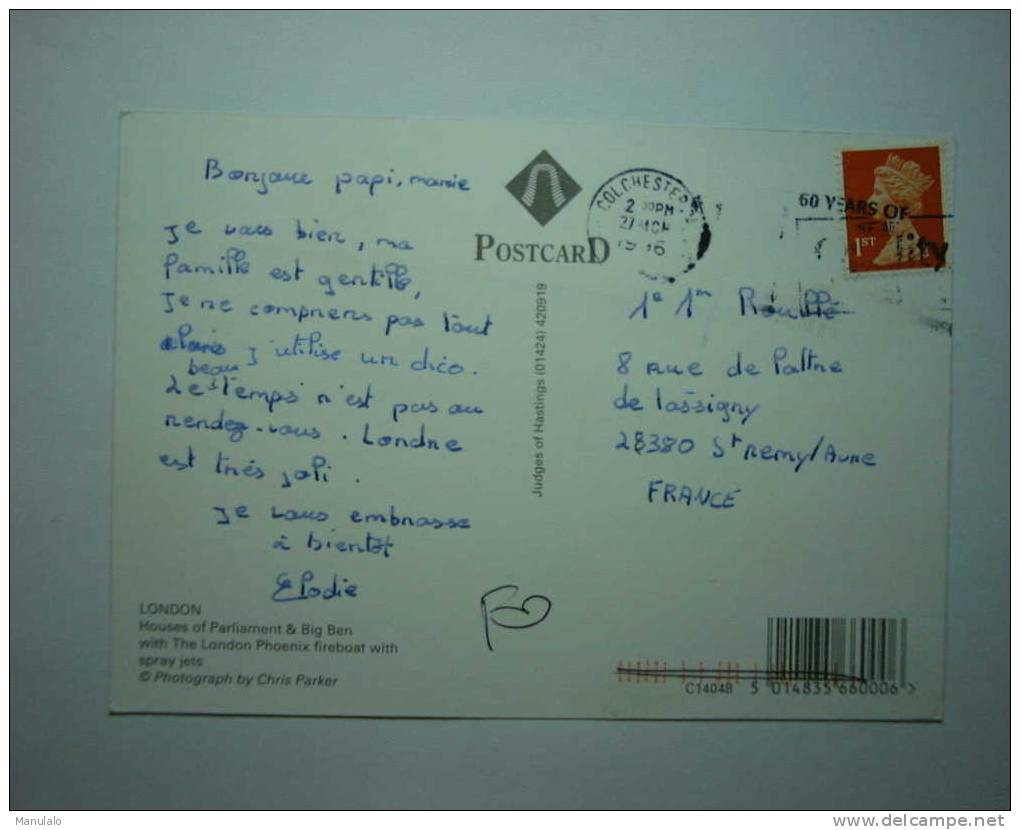 Bonjour papi, mamie
Je vais bien, ma
famille est gentille,
Je ne comprens pas tout
alors j'utilise un dico.
beau
Le temps n'est pas au
rendez-vous. Londre
est très joli.
Je vous embrasse
à bientôt
Elodie
LONDON
Houses of Parliament & Big Ben
with The London Phoenix fireboat with
spray jets
© Photograph by Chris Parker
POSTCARD
Judges of Hastings (01424) 420919
COLCHESTER
27 MCH
60 YEARS OF
1ST
Rouillé
8 rue de
de lassigny
28380 St remy/Avre
FRANCE
C14048 5 014835 660006 >
Manulalo
www.delcampe.net